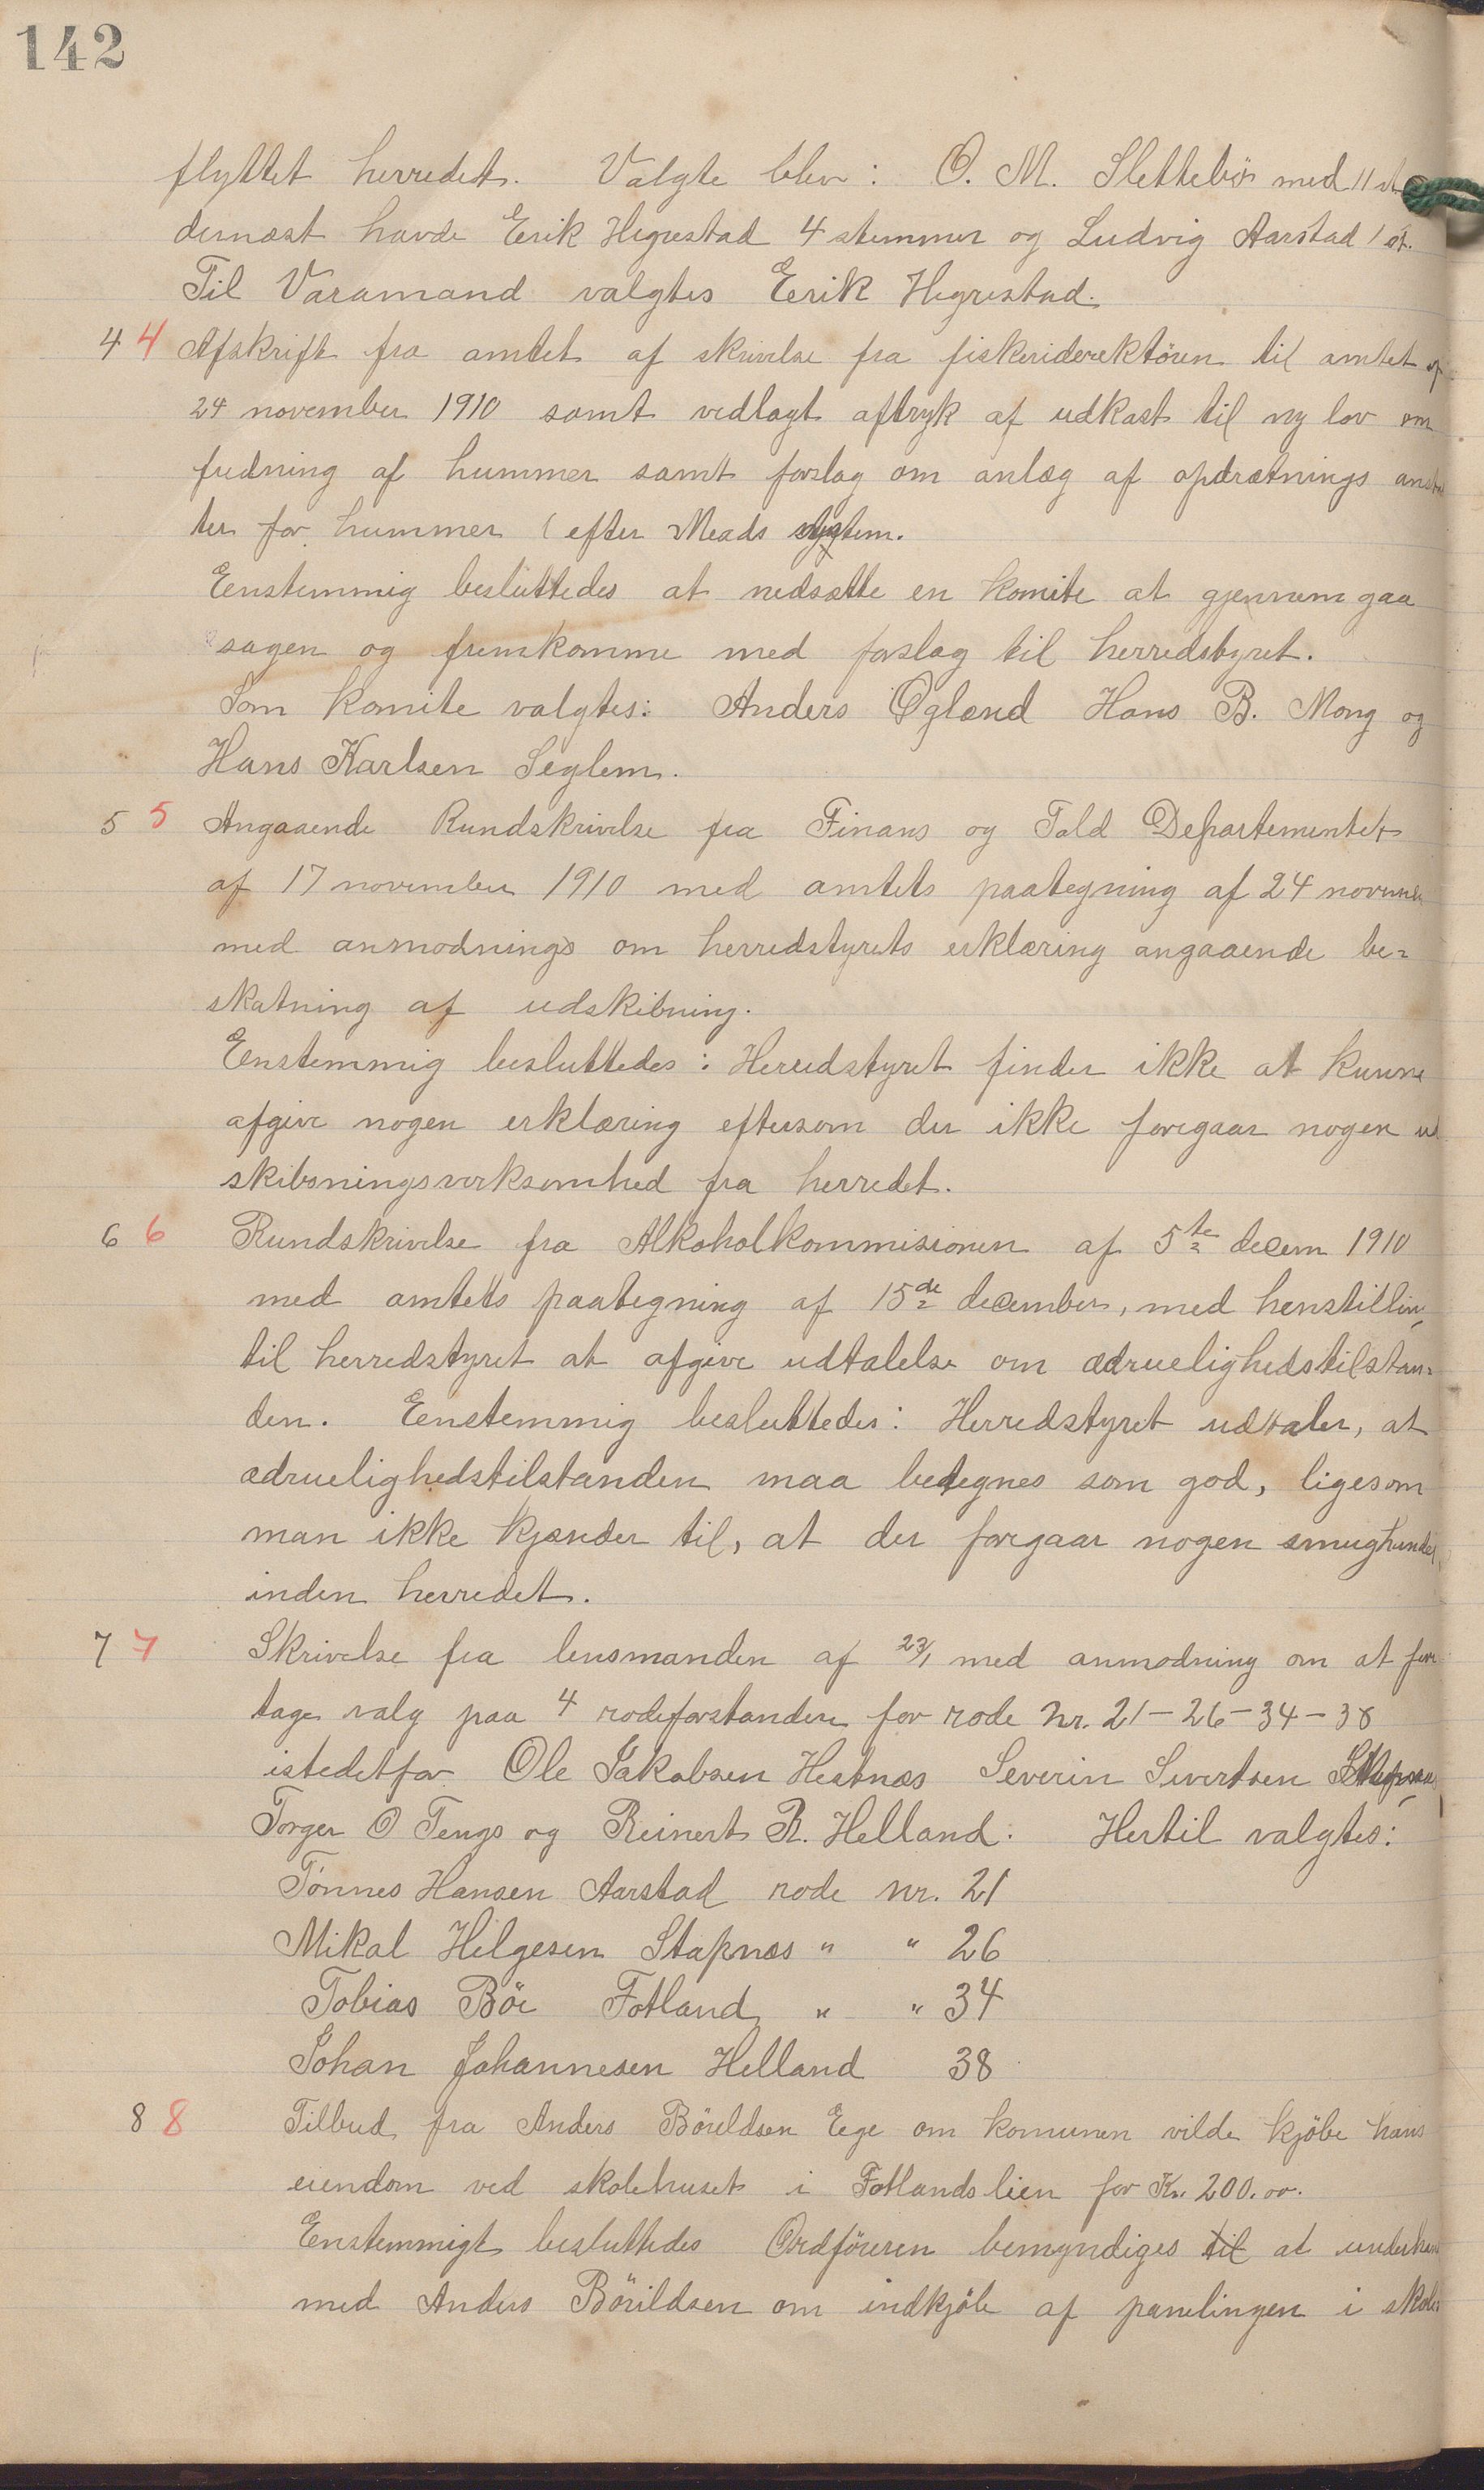 142
flyttet herredet. Valgte blev: O. M. Slettebö med 11 st
dernæst havde Eerik Hegrestad 4 stemmer og Ludvig Aarstad 1 st.
Til Varamand valgtes Eerik Hegrestad.
4 4 Afskrift fra amtet af skrivelse fra fiskeriderektören til amtet af
24 november 1910 samt vedlagt aftryk af udkast til ny lov om
fredning af hummer samt forslag om anlæg af opdrætnings anstal
ter for hummer (efter Meads system.
Eenstemmig besluttedes at nedsætte en komite at gjennemgaa
sagen og fremkomme med forslag til herredstyret.
Som komite valgtes: Anders Ögland Hans B. Mong og
Hans Karlsen Seglem.
5 5 Angaaende Rundskrivelse fra Finans og Told Departementet
af 17 november 1910 med amtets paategning af 24 novemb
med anmodnings om herredstyrets erklæring angaaende be=
skatning af udskibning.
Eenstemmig besluttedes: Herredstyret finder ikke at kunne
afgive nogen erklæring eftersom der ikke foregaar nogen ud
skibsningsvirksomhed fra herredet.
6 6 Rundskrivelse fra Alkoholkommisionen af 5te decem 1910
med amtets paategning af 15de december, med henstillin
til herredstyret at afgive udtalelse om ædruelighedstilstan=
den. Eenstemmig besluttedes: Herredstyret udtaler, at
ædruelighedstilstanden maa betegnes som god, ligesom
man ikke kjender til, at der forgaar nogen smughandel
inden herredet.
7 7 Skrivelse fra lensmanden af 23/1 med anmodning om at fore
tage valg paa 4 rodeforstandere for rode nr. 21-26-34-38
istedetfor Ole Jakobsen Hestnæs Severin Sivertsen
Torger O Tengs og Reinert R. Helland. Hertil valgtes:
Tönnes Hansen Aarstad rode nr. 21
Mikal Helgesen Stapnæs " " 26
Tobias Böe Fotland " " 34
Johan Johannesen Helland 38
8 8 Tilbud fra Anders Böreldsen Eege om komunen vilde kjöbe hans
eiendom ved skolehuset i Fotlandslien for Kr. 200.oo.
Enstemmigt besluttedes Ordföreren bemyndiges til at underhand
med Anders Börildsen om indkjöb af panelingen i skole